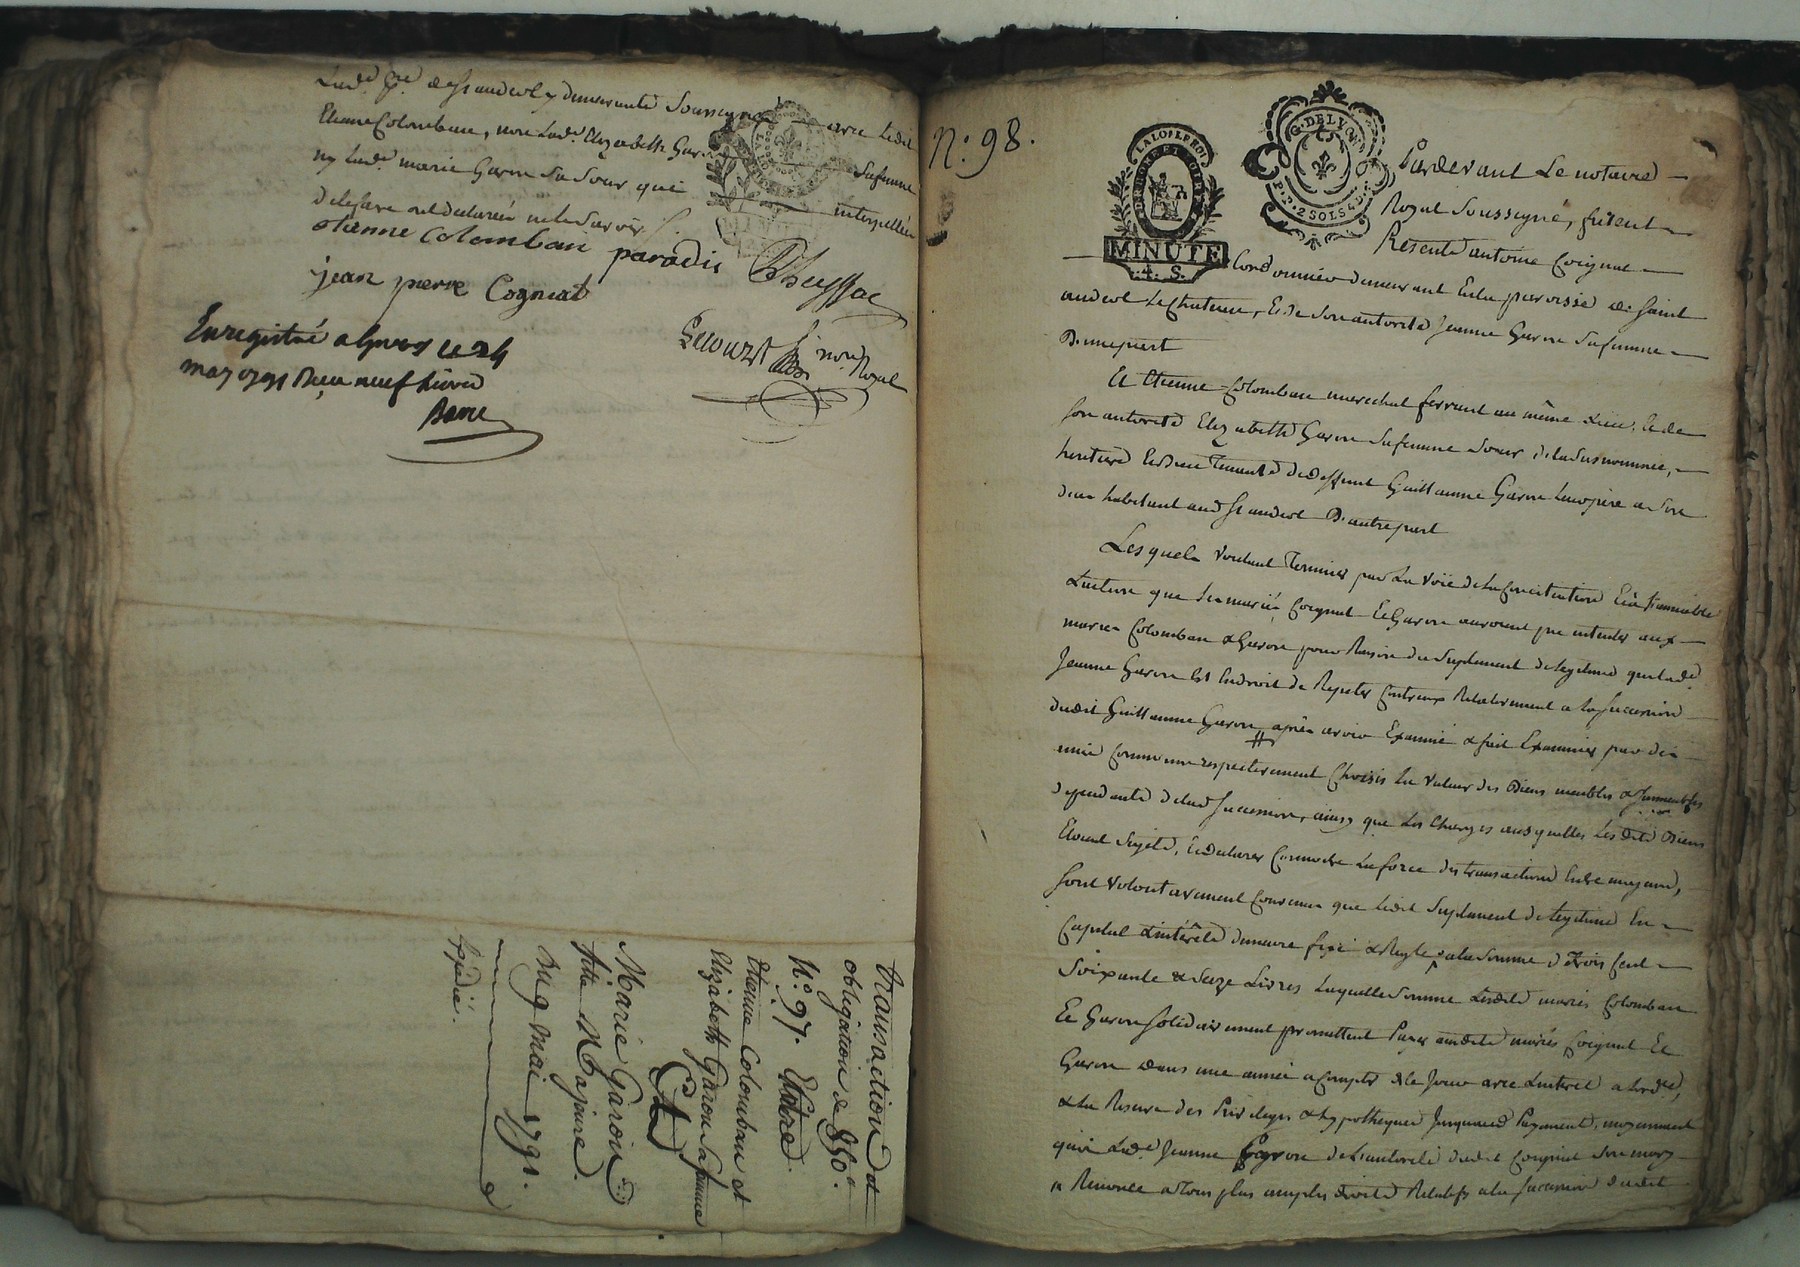 Lad. de St andeol y demeurants Soussigné avec ledit
Etienne Colomban, non lad. Elizabeth Garon sa femme
ny lad. marie Garon sa Sœur qui interpellées
de le faire ont declarée ne le Savoir
etienne Colomban paradis
jean pierre Cogniat
Enregistré a le 24
may 1791 Reçu neuf livres
Barre
not. Royal
Transaction et
obligation de
N.° 97. Entre
Etienne Colomban et
Elizabeth Garon sa femme
Et
Marie Garon
fille Majeure.
Du 9 Mai 1791.
Expédié.
N.° 98.
LA LOI LE ROI
MINUTE
4. S.
G. DE LYON
2 SOLS
Pardevant Le notaire
Royal Soussigné, furent
Présents antoine Coignat
Cordonnier demeurant En la paroisse de Saint
andeol Le Chateau, Et de Son autorité Jeanne Garon Sa femme
D'une part
Et Etienne Colomban marechal ferrant au même Lieu, Et de
Son autorité Elizabeth Garon Sa femme Sœur de la Susnommée,
heritiere de deffunt Guillaume Garon Leur père a Son
deces habitant aud. St andeol D'autre part
Lesquels voulant Terminer par La voie de la Conciliation Et à l'amiable
L'action que les mariés Coignat Et Garon auroient pu intenter aux
mariés Colomban & Garon pour Raison du Suplement de légitime que lad.
Jeanne Garon Est En droit de Repeter Contr'eux Relativement a la Succession
dudit Guillaume Garon, après avoir Examiné & fait Examiner par des
amis Communs respectivement Choisis La valeur des Biens meubles & Immeubles
dependants de lad. Succession, ainsy que Les Charges auxquelles Lesdits Biens
Etoient Sujets, la force des transactions Entre majeurs,
Sont volontairement Convenus que ledit Suplement de légitime En
Capital & intérêts demeure fixé & Reglé a la Somme de Trois Cent
Soixante & Seize Livres Laquelle Somme Lesdits mariés Colomban
Et Garon Solidairement promettent Payer auxdits mariés Coignat Et
Garon dans une année a Compter de Ce Jour avec L'interet
& La Reserve des Privileges & hypotheques Jusqu'au Payement, moyennant
quoi Lad. Jeanne Garon de L'autorité dudit Coignat Son mary
a Renoncé a Tous plus amples droits Relatifs a la Succession dudit